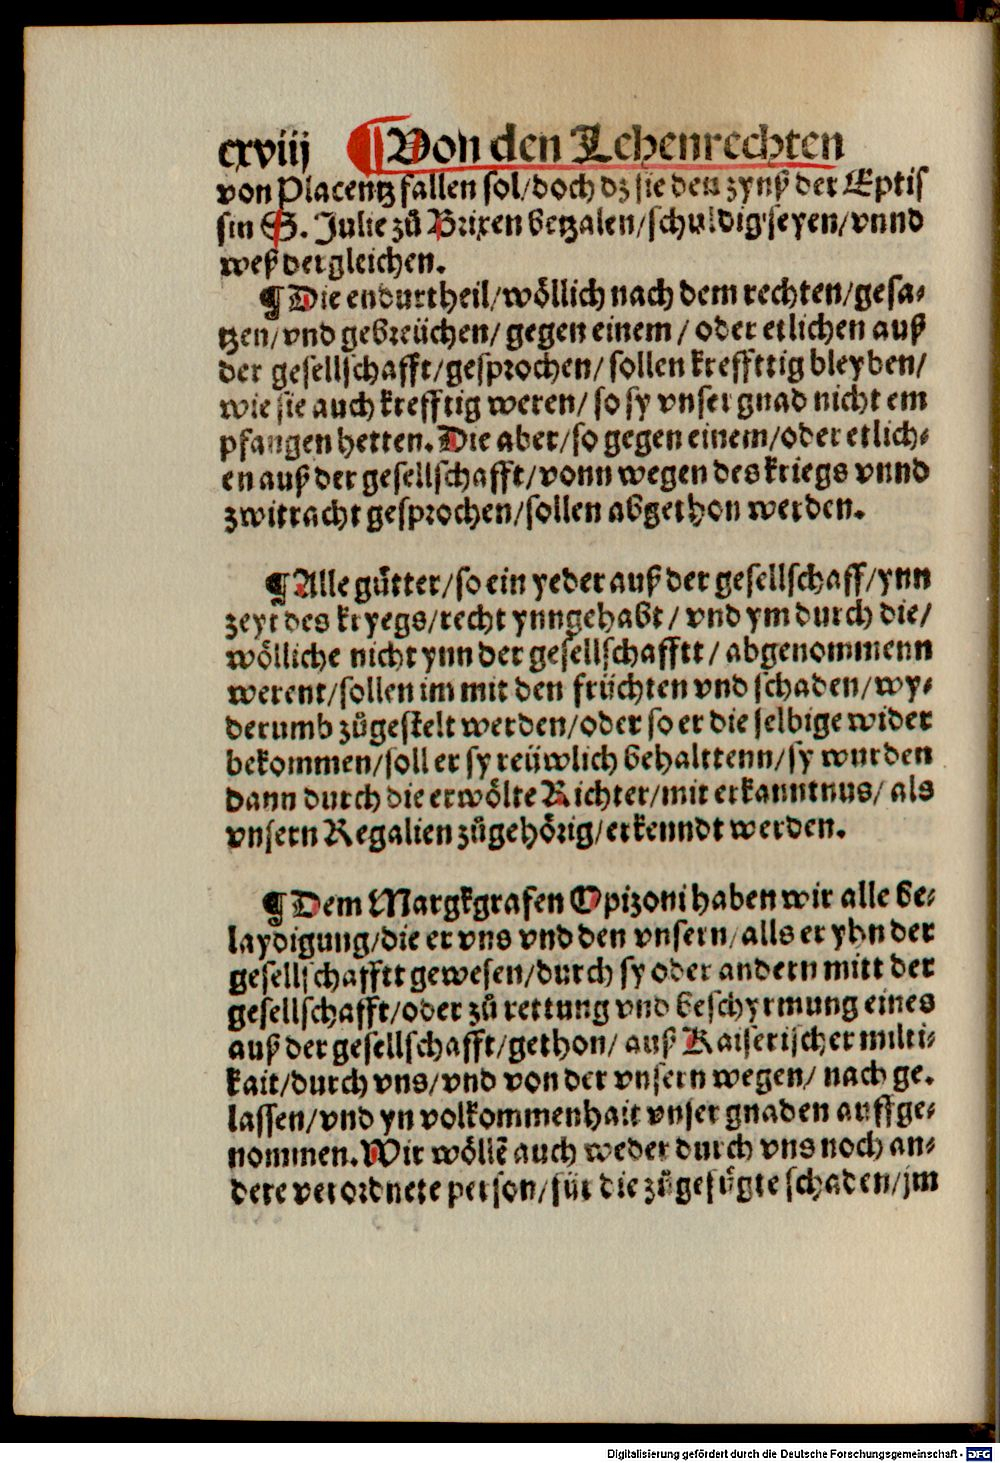 cxviij ¶Von den Lehenrechten
von Placentz fallen sol/doch dz sie den zynß der Eptis
sin S. Julie zů Brixen betzalen/schuldig seyen/vnnd
weß dergleichen.
¶Die endurtheil/wöllich nach dem rechten/gesa⸗
tzen/vnd gebreüchen/ gegen einem / oder etlichen auß
der gesellschafft/gesprochen/ sollen kreffttig bleyben/
wie sie auch krefftig weren/ so sy vnser gnad nicht em
pfangen hetten. Die aber/so gegen einem/oder etlich⸗
en auß der gesellschafft/vonn wegen des kriegs vnnd
zwitracht gesprochen/sollen abgethon werden.
¶Alle gůtter/so ein yeder auß der gesellschaff/ynn
zeyt des kryegs/recht ynngehabt/ vnd ym durch die/
wölliche nicht ynn der gesellschafftt/ abgenommenn
werent/sollen im mit den früchten vnd schaden/wy⸗
derumb zůgestelt werden/oder so er die selbige wider
bekommen/soll er sy reüwlich behalttenn/sy wurden
dann durch die erwölte Richter/mit erkanntnus/ als
vnsern Regalien zůgehörig/erkenndt werden.
¶Dem Margkgrafen Opizoni haben wir alle be⸗
laydigung/die er vns vnd den vnsern/alls er yhn der
gesellschafftt gewesen/durch sy oder andern mitt der
gesellschafft/oder zů rettung vnd beschyrmung eines
auß der gesellschafft/gethon/ auß Kaiserischer milti⸗
kait/durch vns/vnd von der vnsern wegen/ nach ge.
lassen/vnd yn volkommenhait vnser gnaden auffge⸗
nommen. Wir wöllē auch weder durch vns noch an⸗
dere verordnete person/für die zůgefůgte schaden/jm
Digitalisierung gefördert durch die Deutsche Forschungsgemeinschaft - DFG